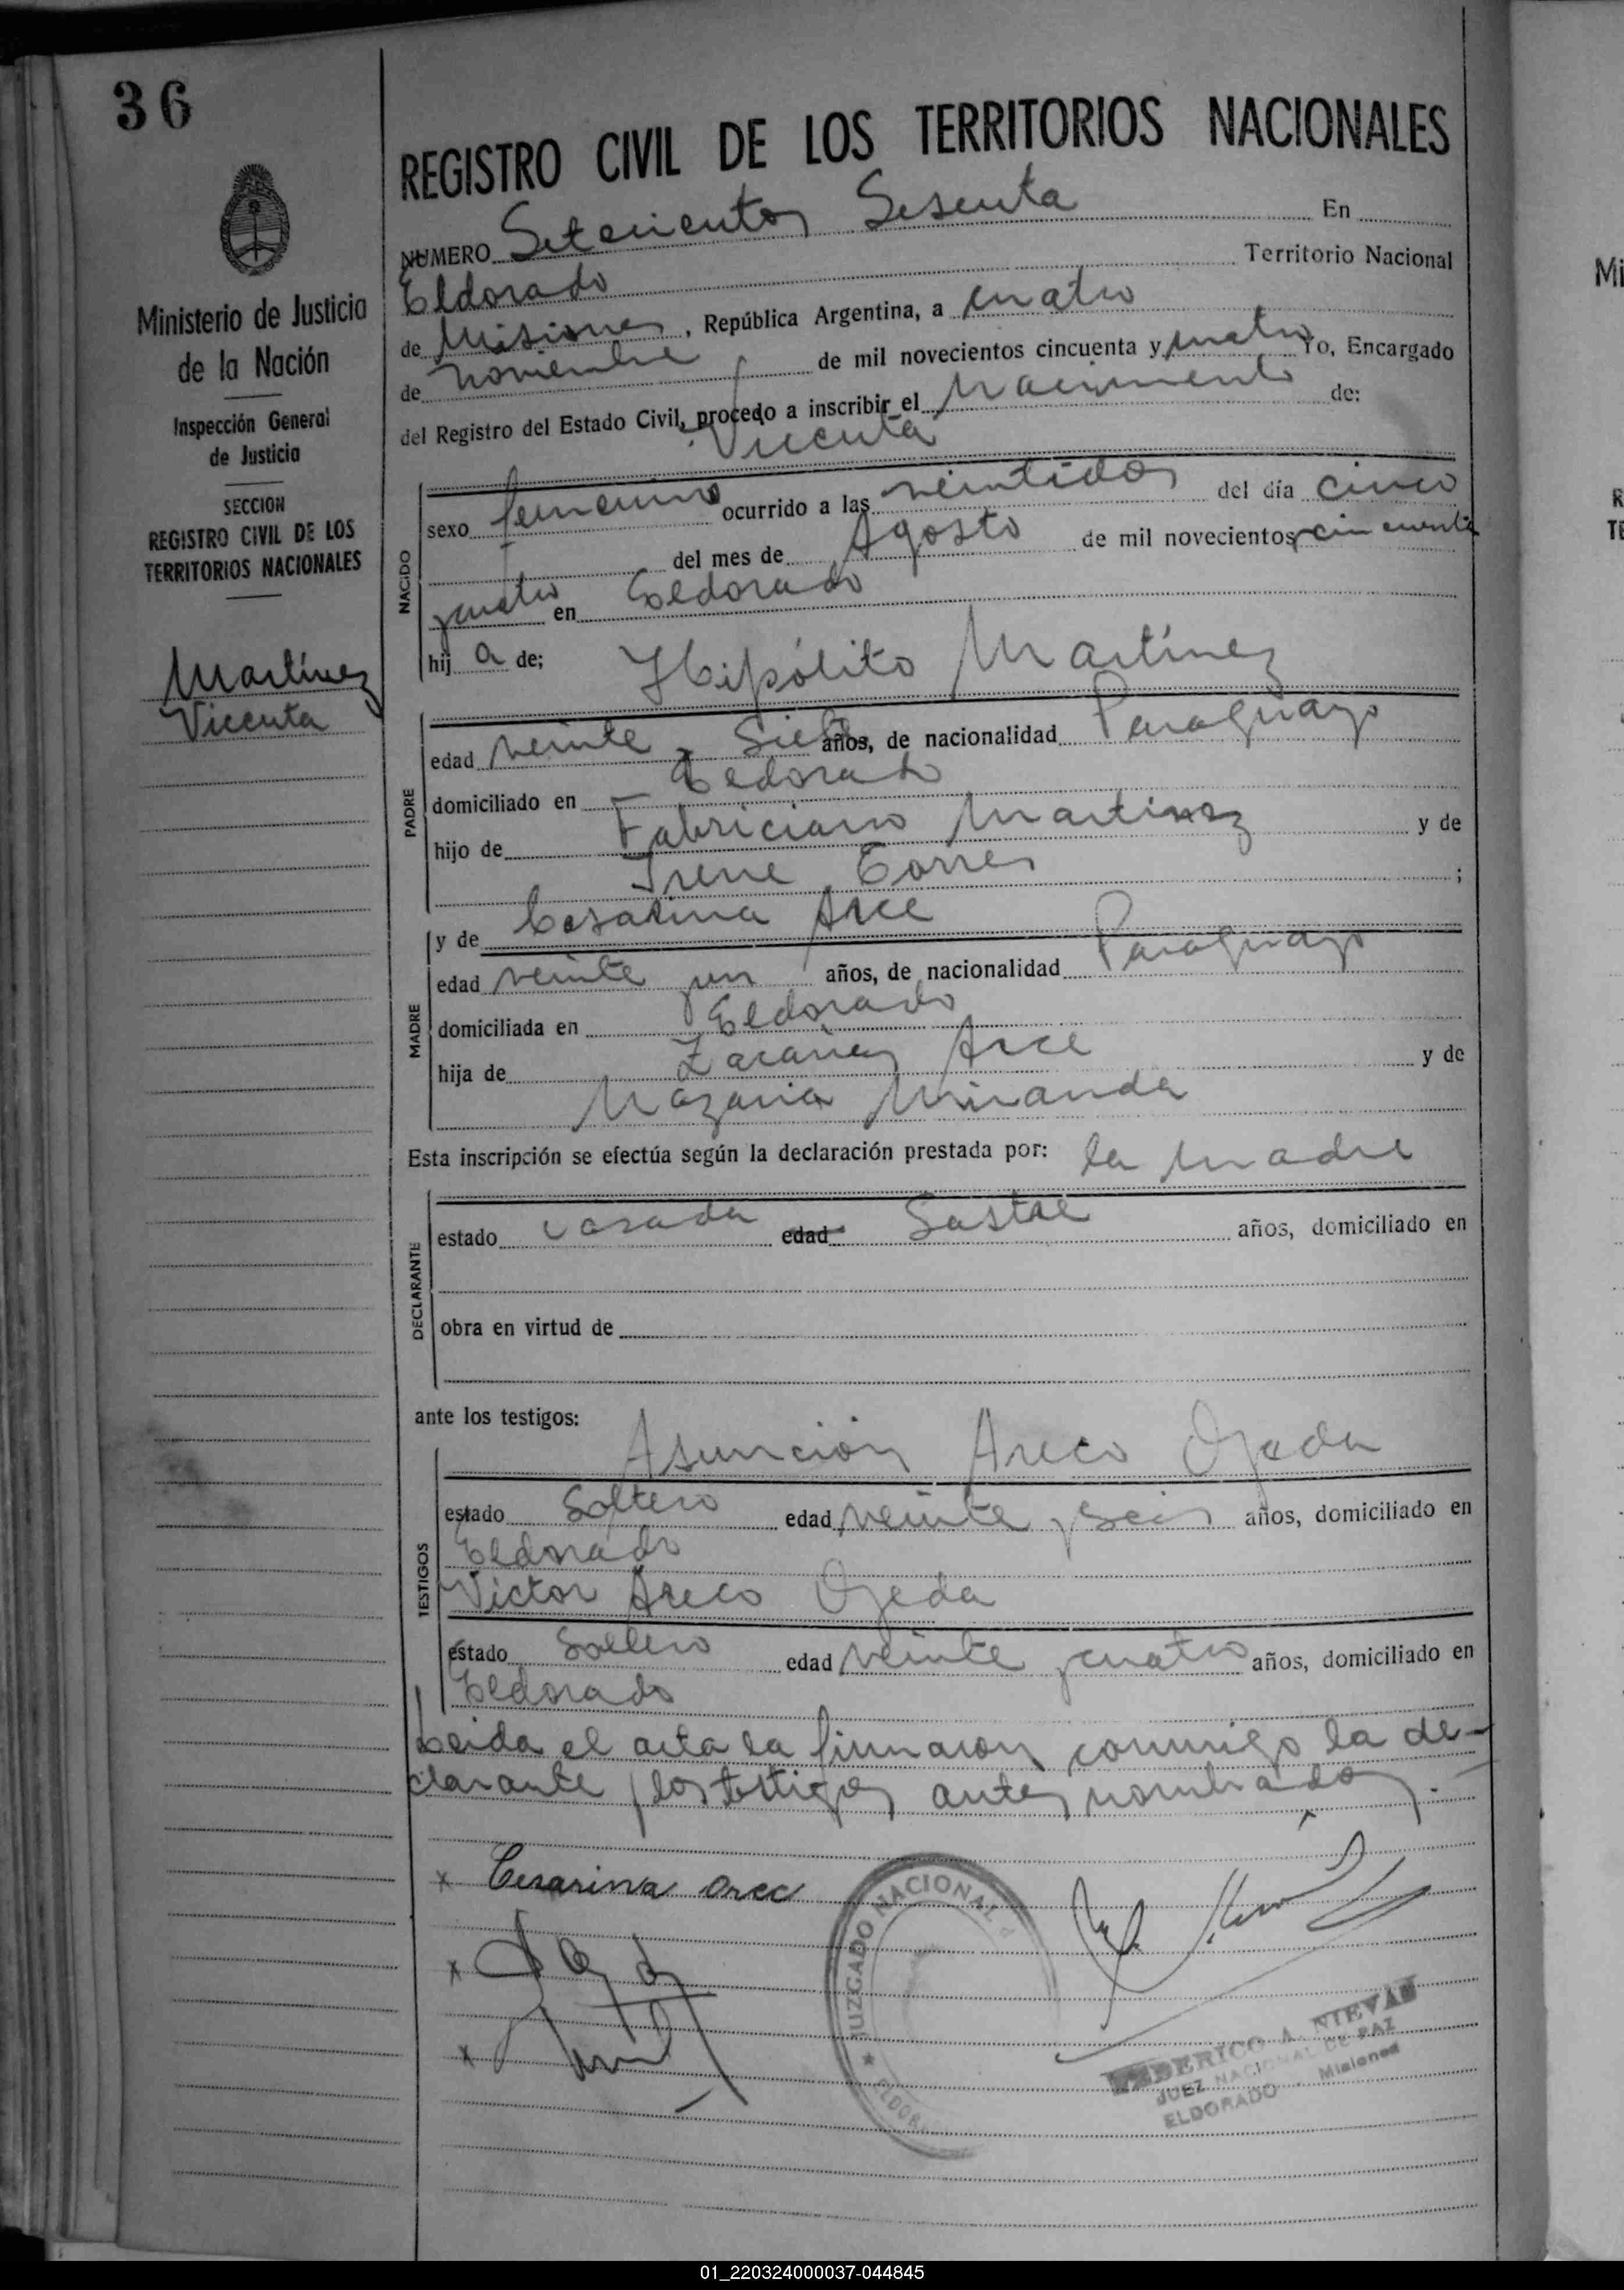 36
Ministerio de Justicia
de la Nación
Inspección General
de Justicia
SECCION
REGISTRO CIVIL DE LOS
TERRITORIOS NACIONALES
Martínez
Vicenta
REGISTRO CIVIL DE LOS TERRITORIOS NACIONALES
NUMERO Setecientos Sesenta En
Eldorado Territorio Nacional
de Misiones, República Argentina, a cuatro
de noviembre de mil novecientos cincuenta y cuatro Yo, Encargado
del Registro del Estado Civil, procedo a inscribir el nacimiento de:
Vicenta
NACIDO
sexo femenino ocurrido a las veintidos del día cinco
del mes de Agosto de mil novecientos cincuenta
y cuatro en Eldorado
hij a de; Hipólito Martínez
PADRE
edad veinte y siete años, de nacionalidad Paraguayo
domiciliado en Eldorado
hijo de Fabriciano Martinez y de
Irene Torres ;
y de Cesarina Arce
MADRE
edad veinte y un años, de nacionalidad Paraguayo
domiciliada en Eldorado
hija de Zacarías Arce y de
Nazaria Miranda
Esta inscripción se efectúa según la declaración prestada por: la madre
DECLARANTE
estado casada edad Sastre años, domiciliado en
obra en virtud de
ante los testigos:
Asunción Areco Ojeda
TESTIGOS
estado Soltero edad veinte y seis años, domiciliado en
Eldorado
Victor Areco Ojeda
estado Soltero edad veinte y cuatro años, domiciliado en
Eldorado
Leida el acta la firmaron conmigo la de-
clarante y los testigos antes nombrados.
x Cesarina Arce
x
x
JUZGADO NACIONAL
ELDORADO
FEDERICO A. NIEVAS
JUEZ NACIONAL DE PAZ
ELDORADO - Misiones
Mi
R
TE
01_220324000037-044845